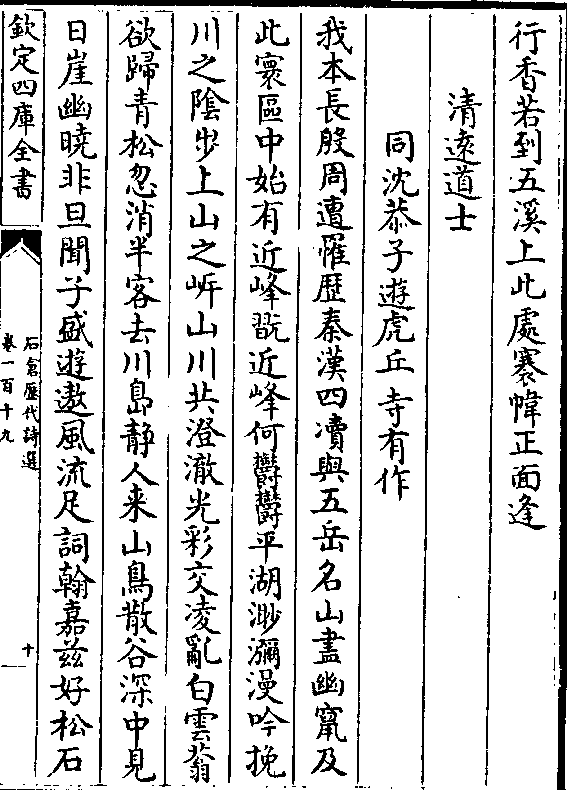 行香若到五溪上此處褰幃正面逢
清遠道士
同沈恭子遊虎丘寺有作
我本長殷周遭罹歴秦漢四瀆與五岳名山盡幽竄及
此寰區中始有近峰翫近峰何欝欝平湖渺瀰漫吟挽
川之陰步上山之㟁山川共澄澈光彩交凌亂白雲蓊
欲歸青松忽消半客去川島静人来山鳥散谷深中見
日崖幽曉非旦聞子盛遊遨風流足詞翰嘉兹好松石
欽定四庫全書
石倉歴代詩選
卷一百十九
十